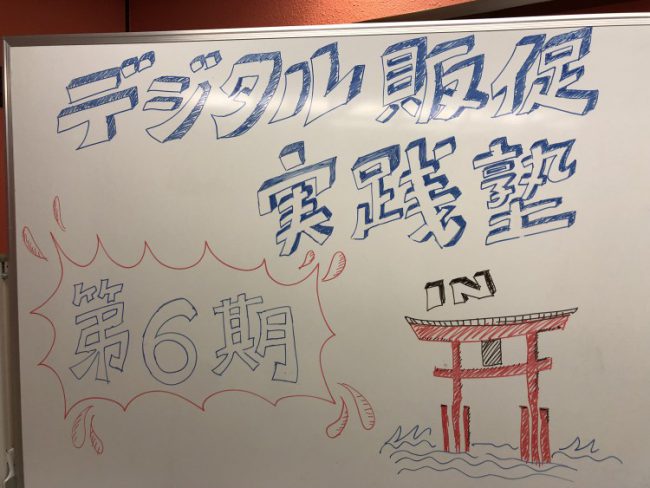 デジタル販促
実践塾
第6期
IN